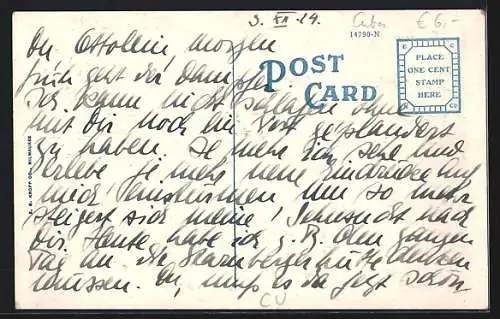 3. XII. 29
Cuba
€ 6,-
14790-N
Du Ottolein, morgen
früh geht der Dampfer
Ich kann nicht schlafen ohne
mit Dir noch ein Wort geplaudert
zu haben. Je mehr ich sehe und
erlebe je mehr neue Eindrücke auf
mich einstürmen um so mehr
steigert sich meine Sehnsucht nach
Dir. Heute habe ich z. B. den ganzen
Tag an die denken
müssen. Du, muss es da jetzt schön
POST CARD
PLACE
ONE CENT
STAMP
HERE
C
CO
E. C. KROPP CO., MILWAUKEE
CU